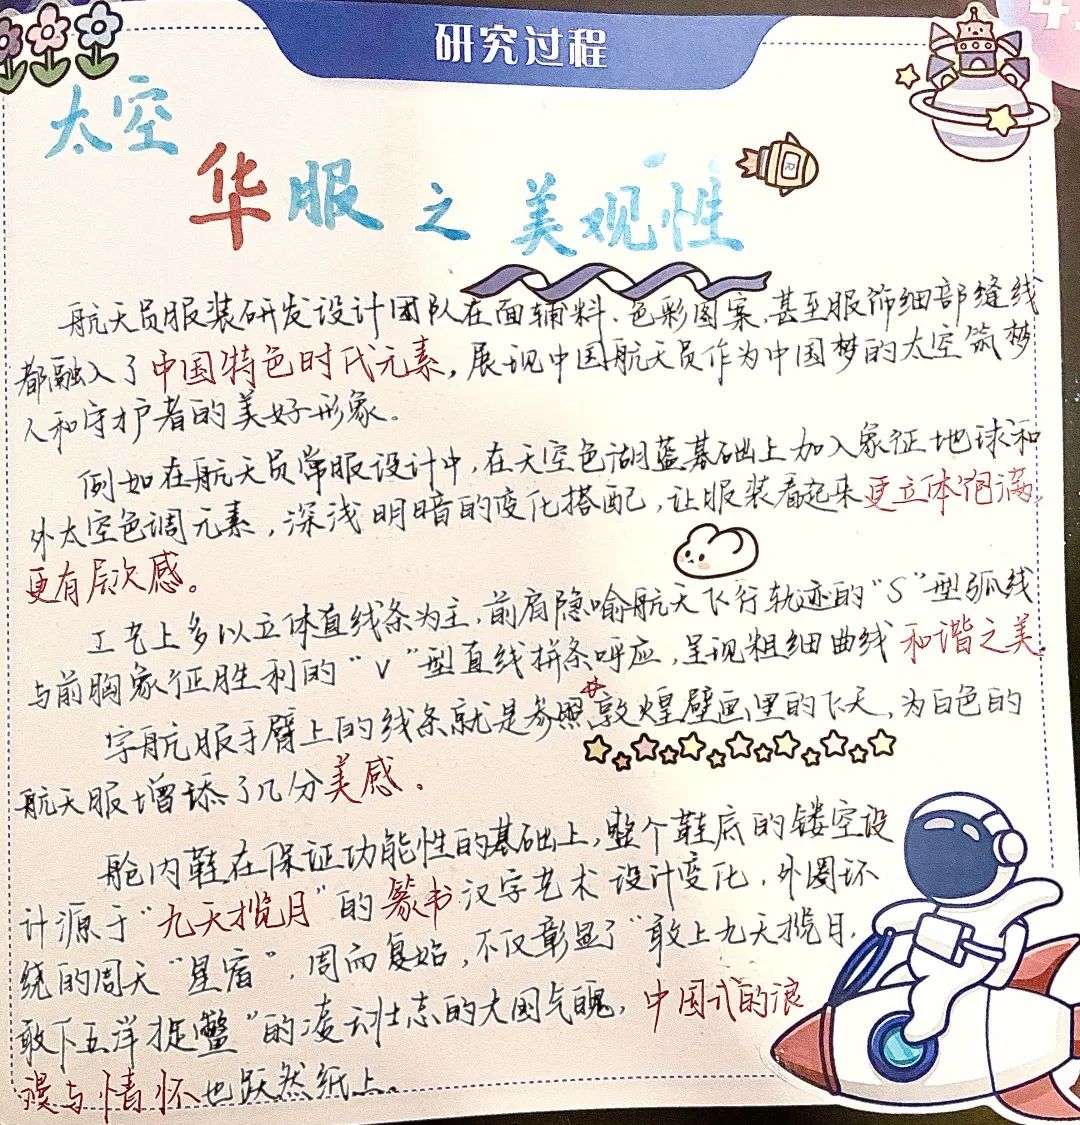 研究过程
太空
华服之美观性
航天员服装研发设计团队在面辅料、色彩图案,甚至服饰细部缝线
都融入了中国特色时代元素,展现中国航天员作为中国梦的太空筑梦
人和守护者的美好形象。
例如在航天员常服设计中,在天空色湖蓝基础上加入象征地球和
外太空色调元素,深浅明暗的变化搭配,让服装看起来更立体饱满,
更有层次感。
工艺上多以立体直线条为主,前肩隐喻航天飞行轨迹的“S”型弧线
与前胸象征胜利的“V”型直线拼条呼应,呈现粗细曲线和谐之美.
字航服手臂上的线条就是参照敦煌壁画里的飞天,为白色的
航天服增添了几分美感。
舱内鞋在保证功能性的基础上,整个鞋底的镂空设
计源于“九天揽月”的篆书汉字艺术设计变化,外圈环
绕的周天“星宿”,周而复始,不仅彰显了“敢上九天揽月,
敢下五洋捉鳖”的凌云壮志的大国气魄,中国式的浪
漫与情怀也跃然纸上.